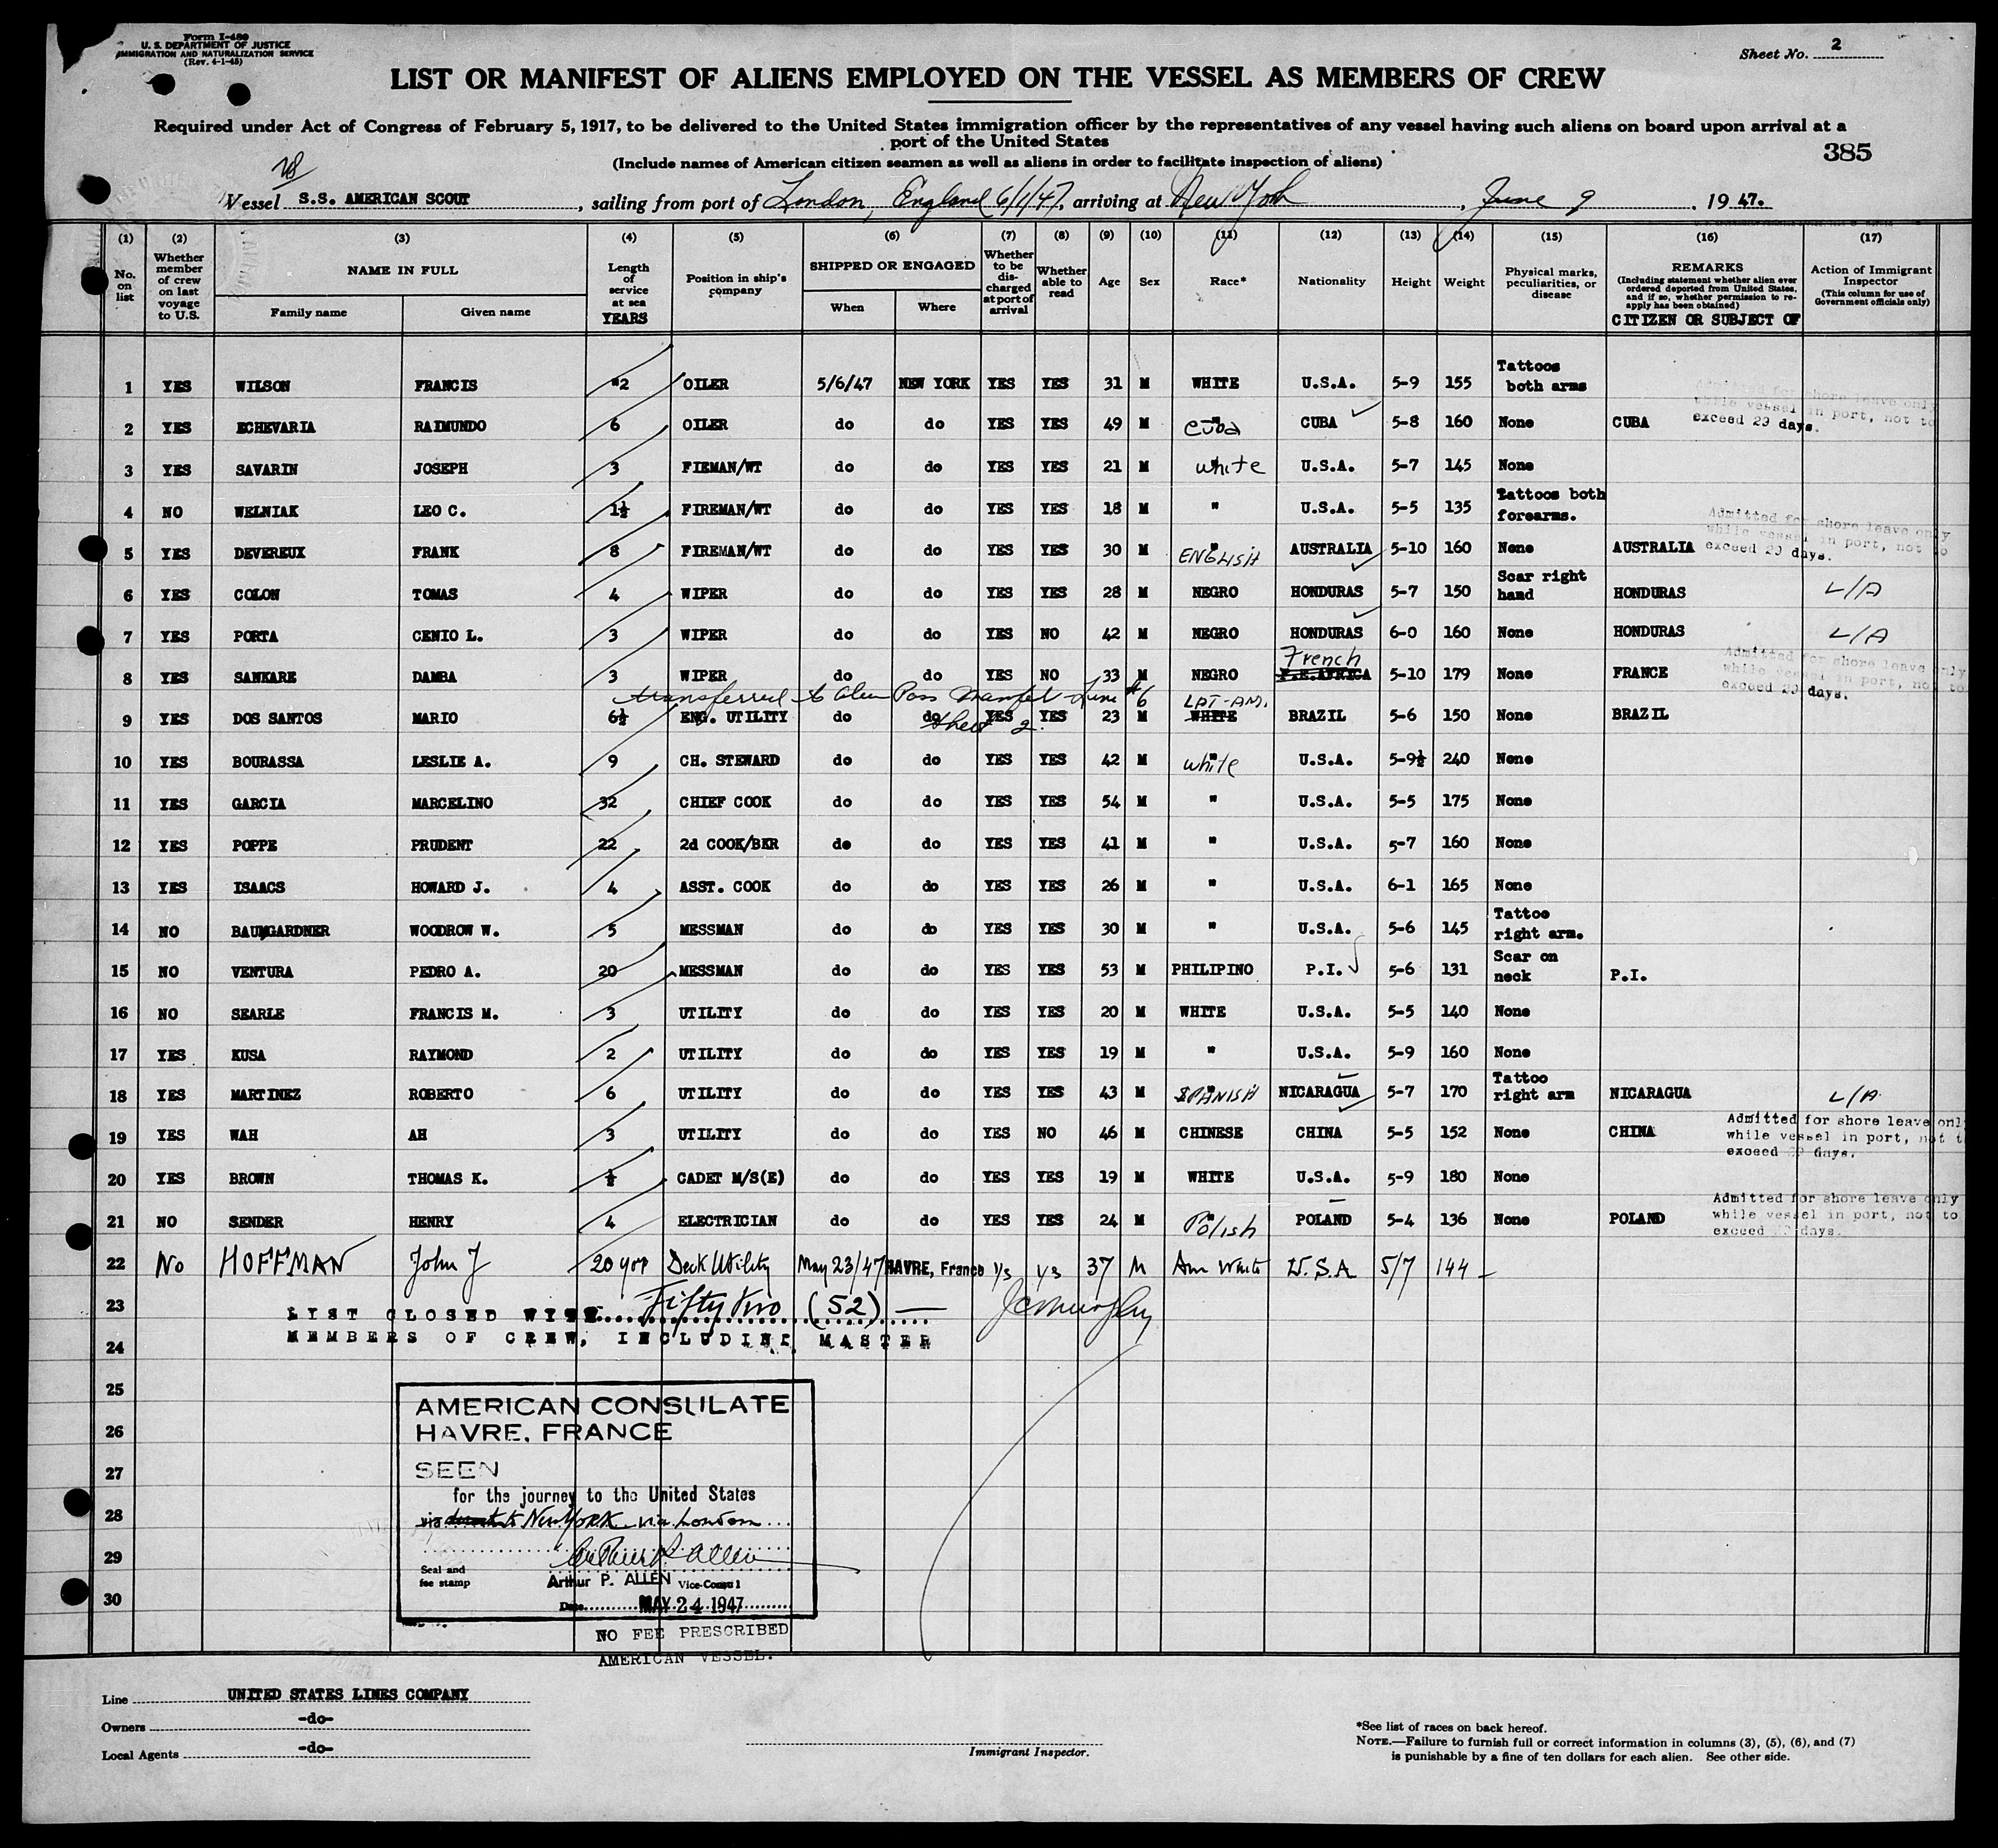 Form I-480
U. S. DEPARTMENT OF JUSTICE
IMMIGRATION AND NATURALIZATION SERVICE
(Rev. 4-1-45)
Sheet No. 2
LIST OR MANIFEST OF ALIENS EMPLOYED ON THE VESSEL AS MEMBERS OF CREW
Required under Act of Congress of February 5, 1917, to be delivered to the United States immigration officer by the representatives of any vessel having such aliens on board upon arrival at a
port of the United States
(Include names of American citizen seamen as well as aliens in order to facilitate inspection of aliens)
385
Vessel S.S. AMERICAN SCOUT, sailing from port of London, England 6/1/47, arriving at New York, June 9, 1947.
(1) (2) (3) (4) (5) (6) (7) (8) (9) (10) (11) (12) (13) (14) (15) (16) (17)
No. on list
Whether member of crew on last voyage to U.S.
NAME IN FULL
Family name Given name
Length of service at sea YEARS
Position in ship's company
SHIPPED OR ENGAGED
When Where
Whether to be discharged at port of arrival
Whether able to read
Age Sex Race* Nationality Height Weight
Physical marks, peculiarities, or disease
REMARKS
(Including statement whether alien ever ordered deported from United States, and if so, whether permission to reapply has been obtained)
CITIZEN OR SUBJECT OF
Action of Immigrant Inspector
(This column for use of Government officials only)
1 YES WILSON FRANCIS 2 OILER 5/6/47 NEW YORK YES YES 31 M WHITE U.S.A. 5-9 155 Tattoos both arms
2 YES ECHEVARIA RAIMUNDO 6 OILER do do YES YES 49 M Cuba CUBA 5-8 160 None CUBA Admitted for shore leave only while vessel in port, not to exceed 29 days.
3 YES SAVARIN JOSEPH 3 FIEMAN/WT do do YES YES 21 M white U.S.A. 5-7 145 None
4 NO WELNIAK LEO C. 1½ FIREMAN/WT do do YES YES 18 M " U.S.A. 5-5 135 Tattoos both forearms.
5 YES DEVEREUX FRANK 8 FIREMAN/WT do do YES YES 30 M ENGLISH AUSTRALIA 5-10 160 None AUSTRALIA Admitted for shore leave only while vessel in port, not to exceed 29 days.
6 YES COLON TOMAS 4 WIPER do do YES YES 28 M NEGRO HONDURAS 5-7 150 Scar right hand HONDURAS L/A
7 YES PORTA CENIO L. 3 WIPER do do YES NO 42 M NEGRO HONDURAS 6-0 160 None HONDURAS L/A
8 YES SANKARE DAMBA 3 WIPER do do YES NO 33 M NEGRO French F.E.AFRICA 5-10 179 None FRANCE Admitted for shore leave only while vessel in port, not to exceed 29 days.
transferred to Alien Pass Manifest June #6 sheet 2.
9 YES DOS SANTOS MARIO 6½ ENG. UTILITY do do YES YES 23 M LAT-AM. WHITE BRAZIL 5-6 150 None BRAZIL
10 YES BOURASSA LESLIE A. 9 CH. STEWARD do do YES YES 42 M white U.S.A. 5-9½ 240 None
11 YES GARCIA MARCELINO 32 CHIEF COOK do do YES YES 54 M " U.S.A. 5-5 175 None
12 YES POPPE PRUDENT 22 2d COOK/BKR do do YES YES 41 M " U.S.A. 5-7 160 None
13 YES ISAACS HOWARD J. 4 ASST. COOK do do YES YES 26 M " U.S.A. 6-1 165 None
14 NO BAUMGARDNER WOODROW W. 5 MESSMAN do do YES YES 30 M " U.S.A. 5-6 145 Tattoo right arm.
15 NO VENTURA PEDRO A. 20 MESSMAN do do YES YES 53 M PHILIPINO P.I. 5-6 131 Scar on neck P.I.
16 NO SEARLE FRANCIS M. 3 UTILITY do do YES YES 20 M WHITE U.S.A. 5-5 140 None
17 YES KUSA RAYMOND 2 UTILITY do do YES YES 19 M " U.S.A. 5-9 160 None
18 YES MARTINEZ ROBERTO 6 UTILITY do do YES YES 43 M SPANISH NICARAGUA 5-7 170 Tattoo right arm NICARAGUA L/A
19 YES WAH AH 3 UTILITY do do YES NO 46 M CHINESE CHINA 5-5 152 None CHINA Admitted for shore leave only while vessel in port, not to exceed 29 days.
20 YES BROWN THOMAS K. ½ CADET M/S(E) do do YES YES 19 M WHITE U.S.A. 5-9 180 None
21 NO SENDER HENRY 4 ELECTRICIAN do do YES YES 24 M Polish POLAND 5-4 136 None POLAND Admitted for shore leave only while vessel in port, not to exceed 29 days.
22 No HOFFMAN John J 20 yrs Deck Utility May 23/47 HAVRE, France Ys Ys 37 M Am White U.S.A 5/7 144 -
23
LIST CLOSED WITH Fifty two (52)
MEMBERS OF CREW, INCLUDING MASTER
24
25
26
27
28
29
30
AMERICAN CONSULATE
HAVRE, FRANCE
SEEN
for the journey to the United States
via New York via London
Arthur P. Allen
Seal and fee stamp
Arthur P. ALLEN Vice-Consul
Date MAY 24 1947
NO FEE PRESCRIBED
AMERICAN VESSEL.
Line UNITED STATES LINES COMPANY
Owners -do-
Local Agents -do-
Immigrant Inspector.
*See list of races on back hereof.
NOTE.—Failure to furnish full or correct information in columns (3), (5), (6), and (7)
is punishable by a fine of ten dollars for each alien. See other side.